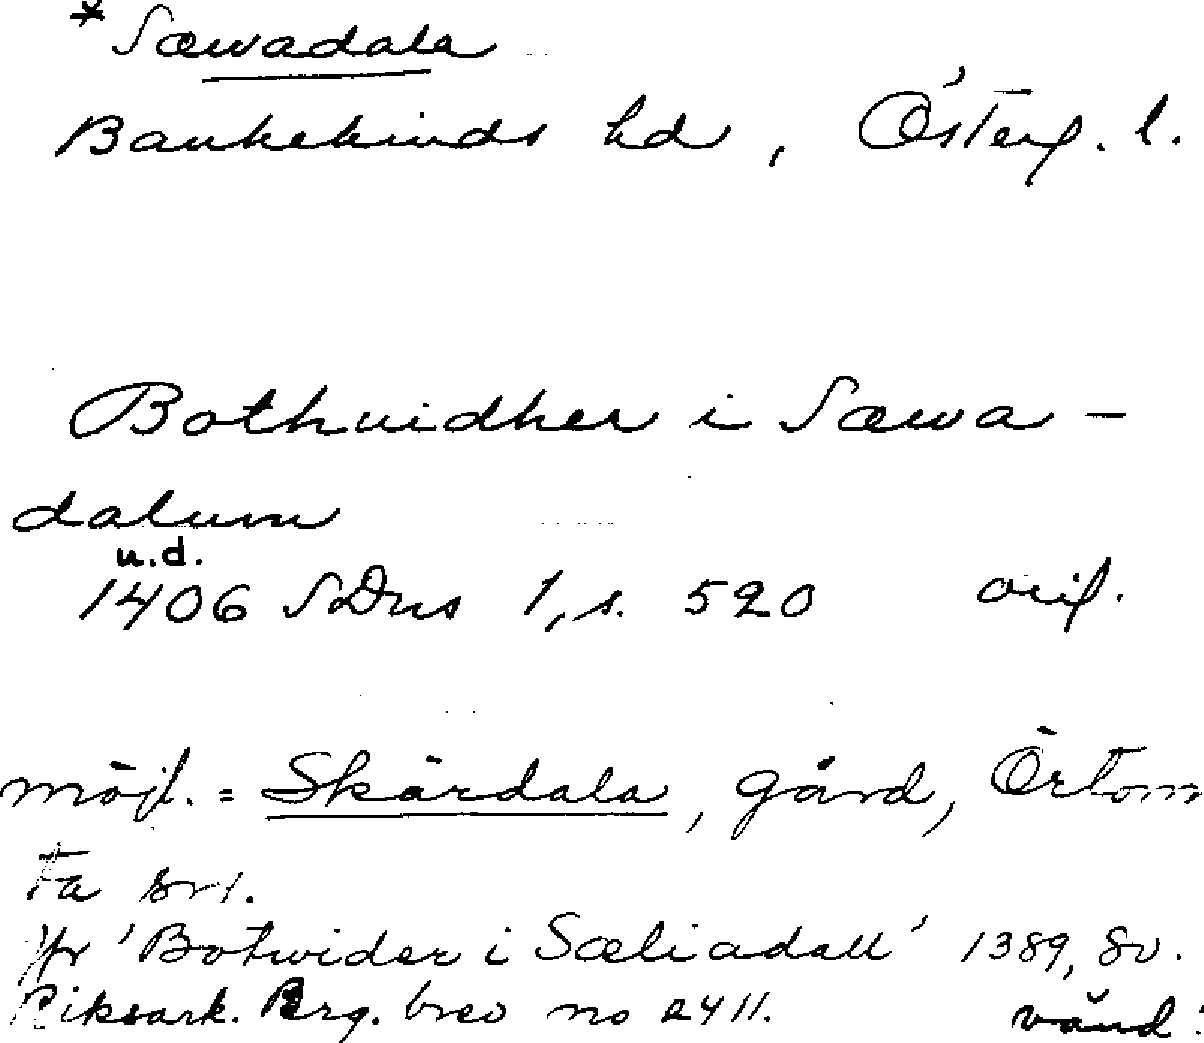 * Sæwadala
Bankekinds hd, Österg. l.
Bothuidher i Sæwa-
dalum
u.d.
1406 SDns 1, s. 520 orig.
möjl. = Skärdala, gård, Örtom
ta sn.
Jfr 'Botwider i Sæliadall' 1389, Sv.
Riksark. Perg. brev no 2411.
vänd!